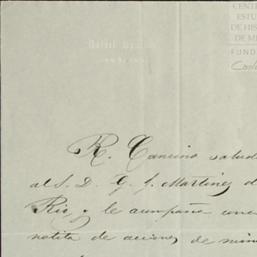 CENT
ESTU
DE HIS
DE M
FUND
R. Cancino salud
al S. D. G. S. Martinez d
Rio, y le acompaña una
notita de acciones de min